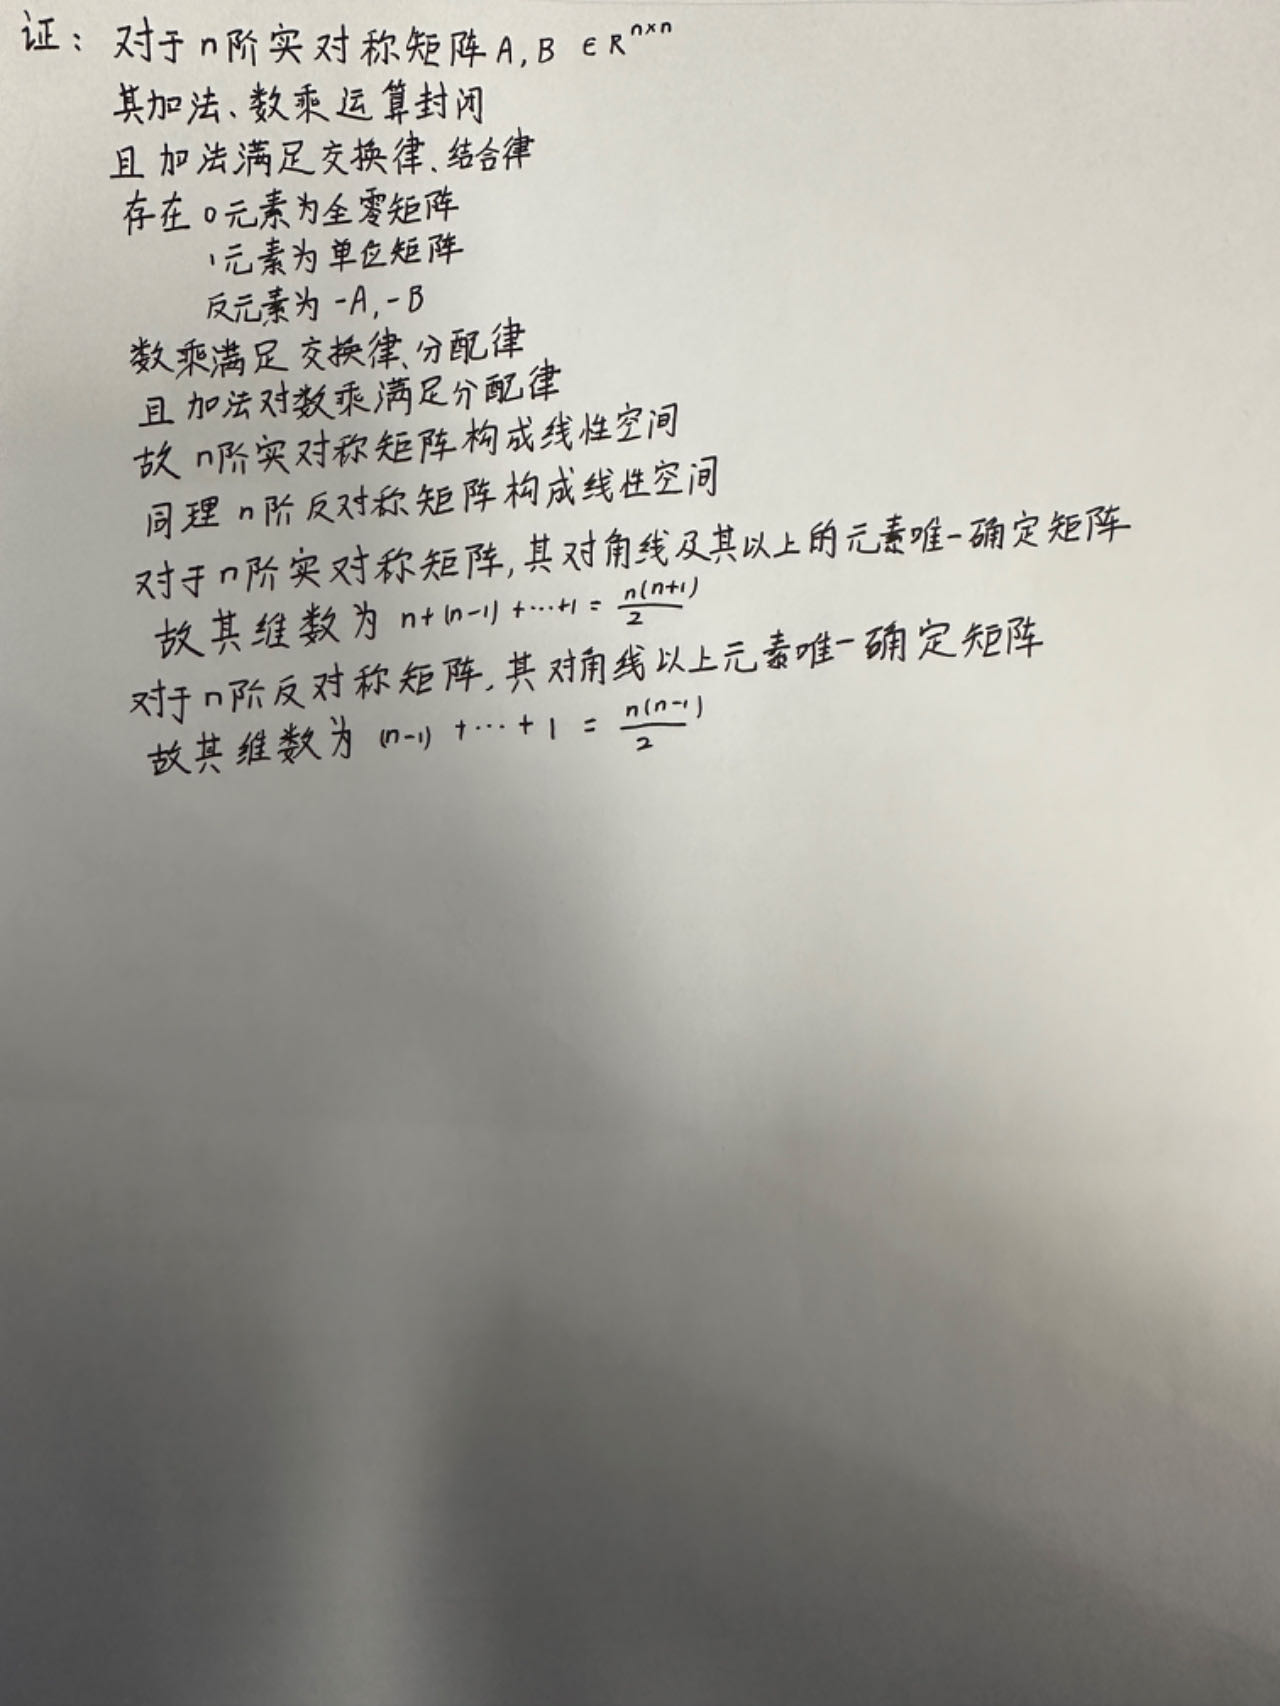 证：对于n阶实对称矩阵A,B ∈R^{n×n}
其加法、数乘运算封闭
且加法满足交换律、结合律
存在0元素为全零矩阵
1元素为单位矩阵
反元素为-A,-B
数乘满足交换律、分配律
且加法对数乘满足分配律
故n阶实对称矩阵构成线性空间
同理n阶反对称矩阵构成线性空间
对于n阶实对称矩阵,其对角线及其以上的元素唯一确定矩阵
故其维数为 n+(n-1)+…+1 = \frac{n(n+1)}{2}
对于n阶反对称矩阵,其对角线以上元素唯一确定矩阵
故其维数为 (n-1)+…+1 = \frac{n(n-1)}{2}